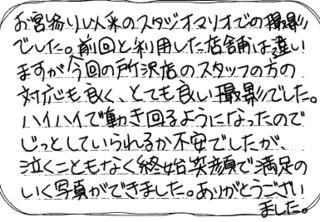 お宮参り以来のスタジオマリオでの撮影
でした。前回と利用した店舗は違い
ますが今回の所沢店のスタッフの方の
対応も良く、とても良い撮影でした。
ハイハイで動き回るようになったので
じっとしていられるか不安でしたが、
泣くこともなく終始笑顔で満足の
いく写真ができました。ありがとうござい
ました。